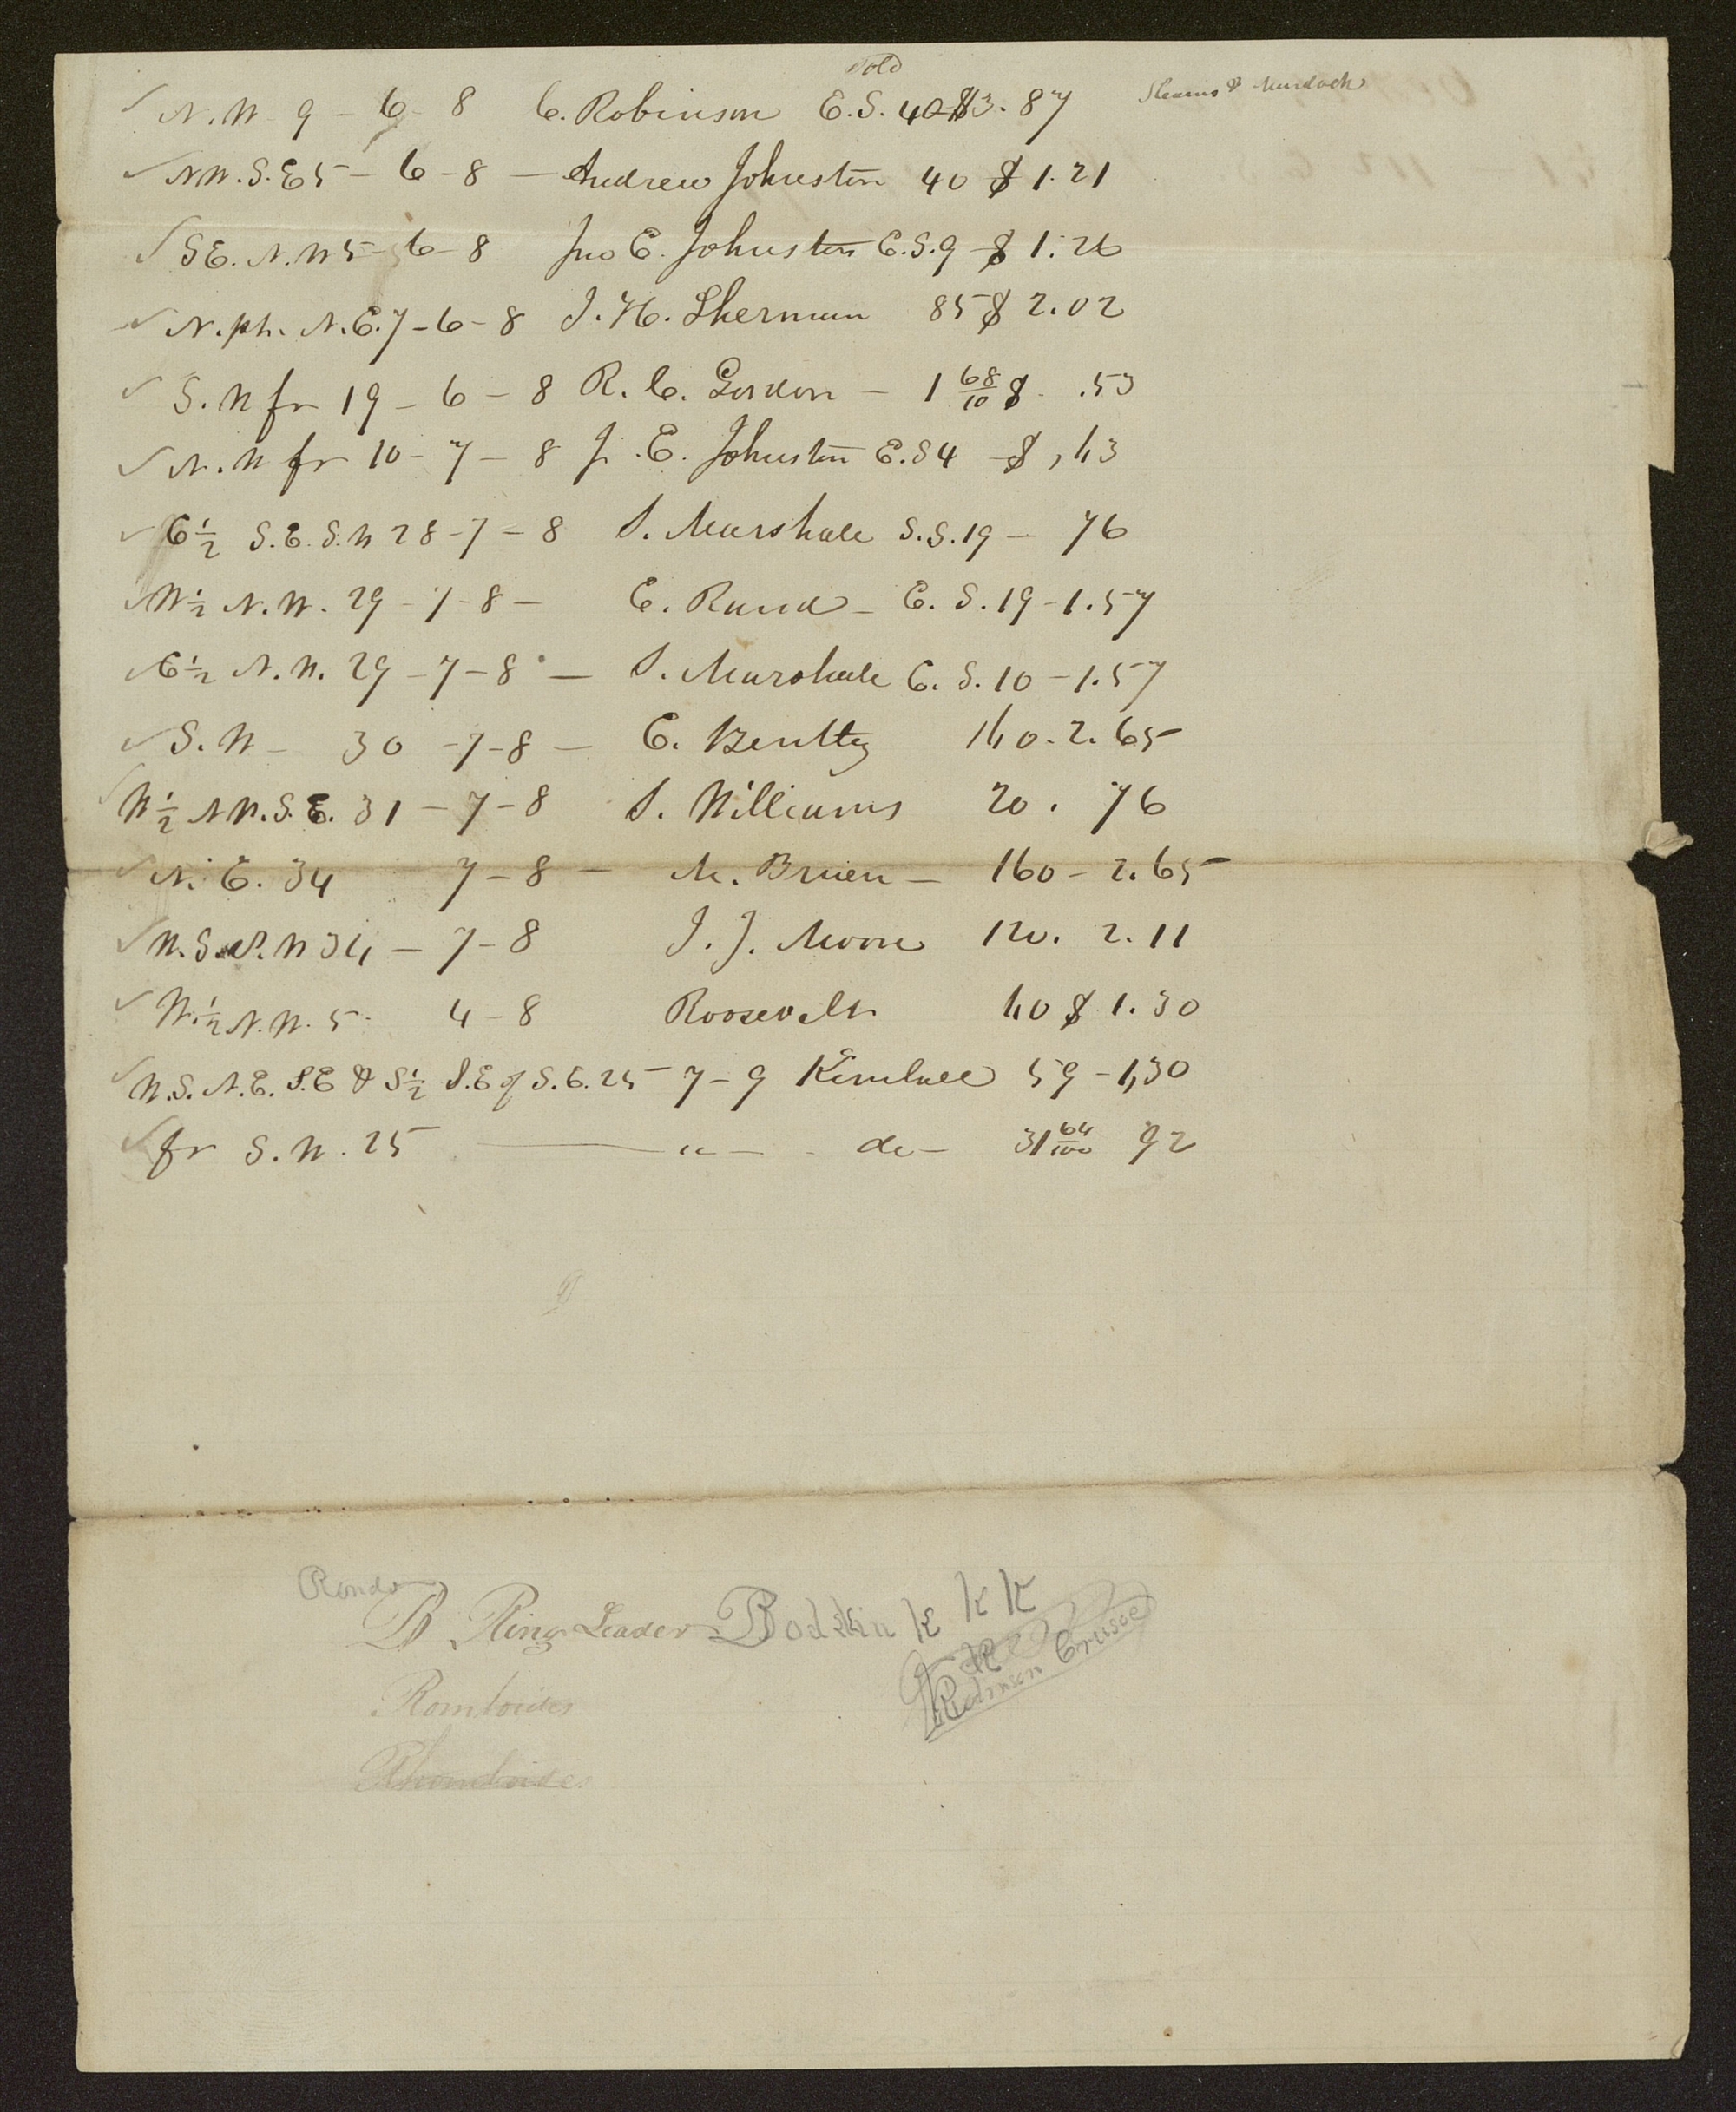 Sold
✓ N.W. 9 - 6 - 8 C. Robinson E.S. 40 $3.87 Stearns & Murdock
✓ N.W. S.E 5 - 6 - 8 — Andrew Johnston 40 $ 1.21
✓ S E. N.W 5 - 6 - 8 Jno E. Johnston E.S. 9 - $ 1.26
✓ N. pt. N.E. 7 - 6 - 8 J. H. Sherman 85 $ 2.02
✓ S.W fr 19 - 6 - 8 R. C. Gordon - 1 68/10 $ .53
✓ N.W fr 10 - 7 - 8 J. E. Johnston E.S 4 - $ ,43
✓ E ½ S.E. S.W 28 - 7 - 8 S. Marshall S.S. 19 - 76
✓ W ½ N.W. 29 - 7 - 8 - E. Rand - E. S. 19 - 1.57
✓ E ½ N.W. 29 - 7 - 8 — S. Marshall E. S. 10 - 1.57
✓ S.W - 30 - 7 - 8 — E. Bentley 140. 2.65
✓ W ½ N W. S.E. 31 - 7 - 8 S. Williams 20. 76
✓ N. E. 34 7 - 8 - M. Bruen - 160 - 2.65
✓ W.S. S.W 34 - 7 - 8 J. J. Moore 120. 2.11
✓ W. ½ N.W. 5 - 4 - 8 Roosevelt 40 $ 1.30
✓ W.S. N.E. S.E & S ½ S.E of S.E. 25 - 7 - 9 Kimball 59 - 1,30
✓ fr S.W. 25 — " — do - 31 64/100 92
Rondo
B Ring Leader Bodkin K K K
K
Robinson Crusoe
Romboides
Rhomboides